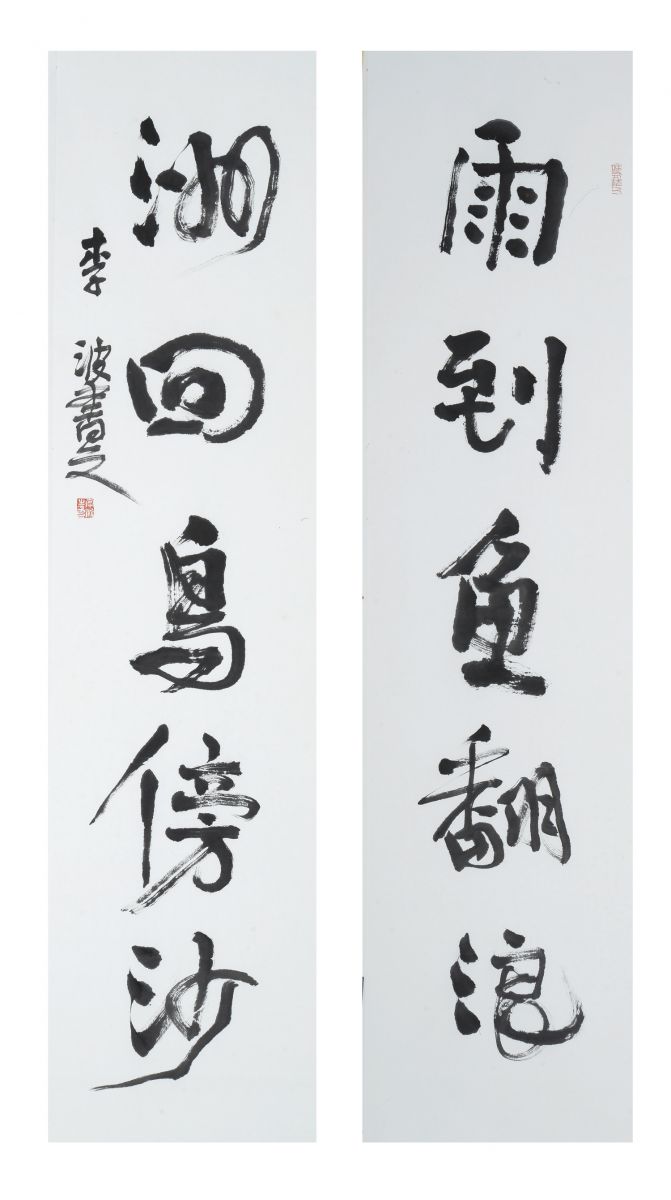 雨到鱼翻浪
洲回鳥傍沙
李波書之